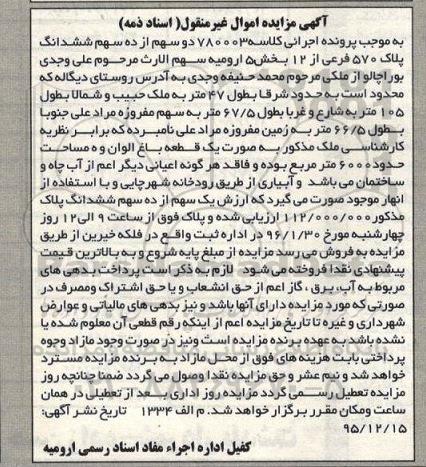 آگهی مزایده اموال غیرمنقول( اسناد ذمه)
به موجب پرونده اجرائی کلاسه۷۸۰۰۰۳ دو سهم از ده سهم ششدانگ
پلاک ۵۷۰ فرعی از ۱۲ بخش۵ ارومیه سهم الارث مرحوم علی وجدی
بوراچالو از ملکی مرحوم محمد حنیفه وجدی به آدرس روستای دیگاله که
محدود است به حدود شرقا بطول ۴۷ متر به ملک حبیب و شمالا بطول
۱۰۵ متر به شارع و غربا بطول ۶۷/۵ متر به سهم مفروزه مراد علی جنوبا
بطول ۶۶/۵ متر به زمین مفروزه مراد علی نامبرده که برابر نظریه
کارشناسی ملک مذکور به صورت یک قطعه باغ الوان و ه مساحت
حدود ۶۰۰۰ متر مربع بوده و فاقد هر گونه اعیانی دیگر اعم از آب چاه و
ساختمان می باشد و آبیاری از طریق رودخانه شهرچایی و با استفاده از
انهار موجود صورت می گیرد که ارزش یک سهم از ده سهم ششدانگ پلاک
مذکور ۱۱۲/۰۰۰/۰۰۰ ارزیابی شده و پلاک فوق از ساعت ۹ الی ۱۲ روز
چهارشنبه مورخ ۹۶/۱/۳۰ در اداره ثبت واقع در فلکه خیرین از طریق
مزایده به فروش می رسد مزایده از مبلغ پایه شروع و به بالاترین قیمت
پیشنهادی نقدا فروخته می شود لازم به ذکر است پرداخت بدهی های
مربوط به آب، برق ، گاز اعم از حق انشعاب و یا حق اشتراک ومصرف در
صورتی که مورد مزایده دارای آنها باشد و نیز بدهی های مالیاتی و عوارض
شهرداری و غیره تا تاریخ مزایده اعم از اینکه رقم قطعی آن معلوم شده یا
نشده باشد به عهده برنده مزایده است ونیز در صورت وجود مازاد وجوه
پرداختی بابت هزینه های فوق از محل مازاد به برنده مزایده مسترد
خواهد شد و نیم عشر و حق مزایده نقدا وصول می گردد ضمنا چنانچه روز
مزایده تعطیل رسمی گردد مزایده روز اداری بعد از تعطیلی در همان
ساعت ومکان مقرر برگزار خواهد شد. م الف ۱۳۳۴ تاریخ نشر آگهی:
۹۵/۱۲/۱۵
کفیل اداره اجراء مفاد اسناد رسمی ارومیه